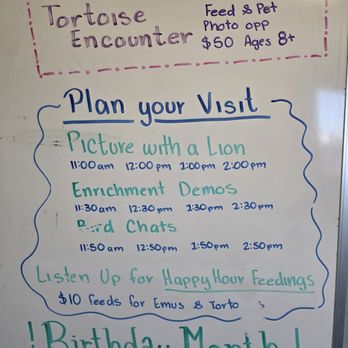 Tortoise
Encounter
Feed & Pet
Photo opp
$50 Ages 8+
Plan your Visit
Picture with a Lion
11:00am 12:00pm 1:00pm 2:00pm
Enrichment Demos
11:30am 12:30pm 1:30pm 2:30pm
Chats
11:50am 12:50pm 1:50pm 2:50pm
Listen Up for Happy Hour Feedings
$10 Feeds for Emus & Torto
! Birthday Month !